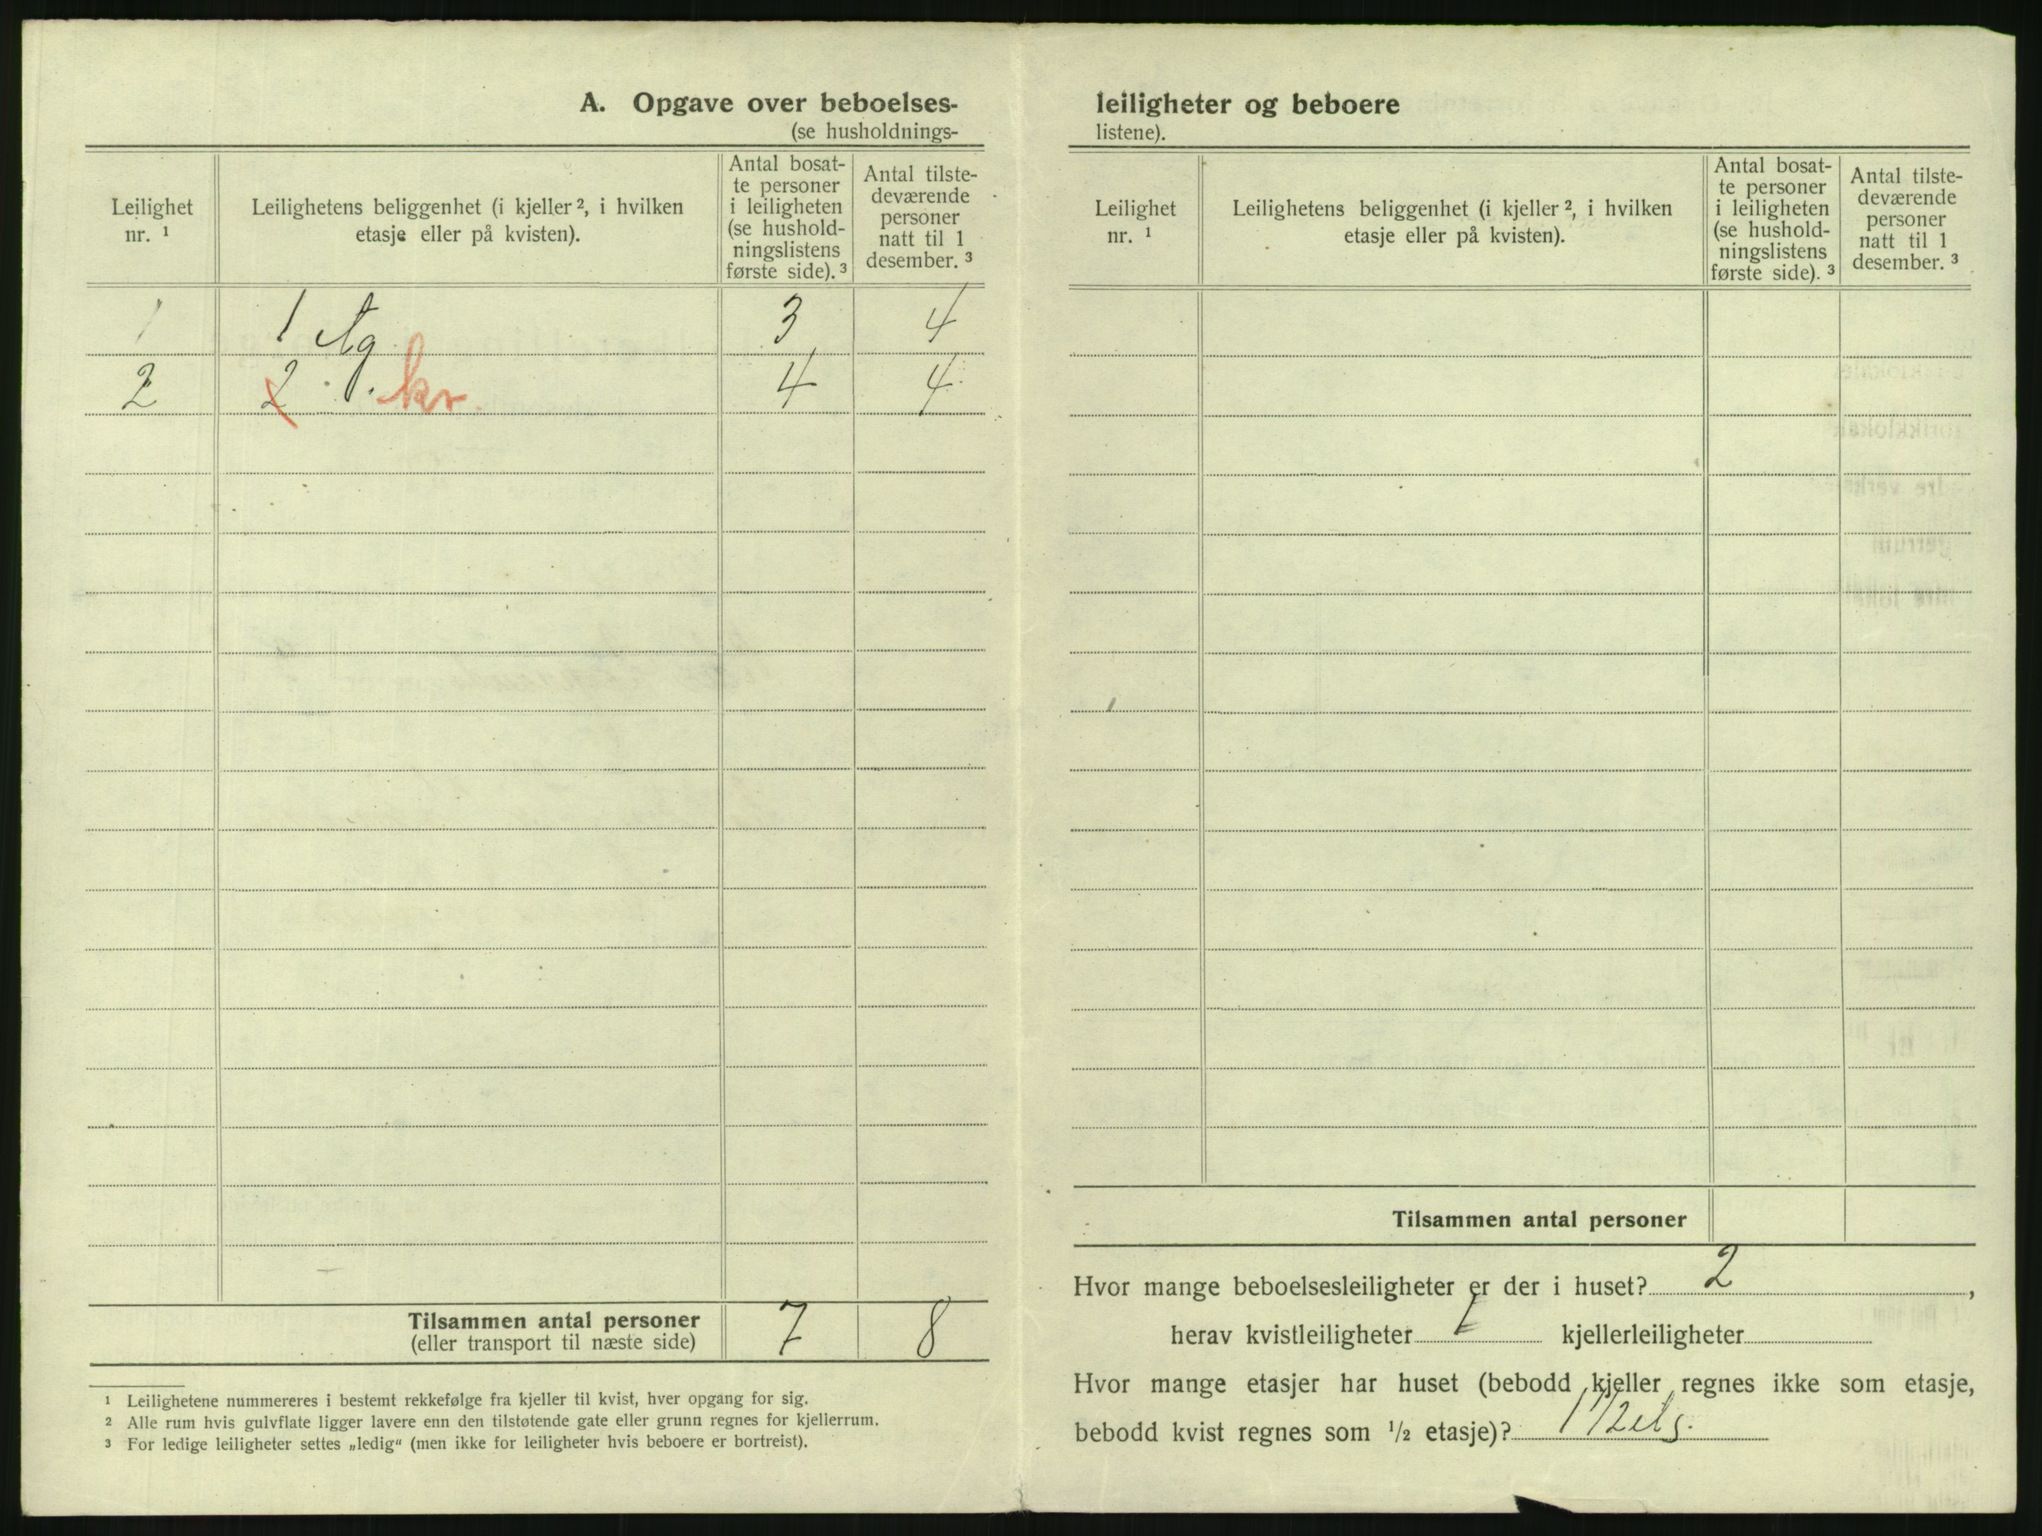 A. Opgave over beboelses-
(se husholdnings-
Leilighet
nr. ¹
Leilighetens beliggenhet (i kjeller ², i hvilken
etasje eller på kvisten).
Antal bosat-
te personer
i leiligheten
(se hushold-
ningslistens
første side). ³
Antal tilste-
deværende
personer
natt til 1
desember. ³
1 1 etg 3 4
2 2 . kv. 4 4
Tilsammen antal personer 7 8
(eller transport til næste side)
¹ Leilighetene nummereres i bestemt rekkefølge fra kjeller til kvist, hver opgang for sig.
² Alle rum hvis gulvflate ligger lavere enn den tilstøtende gate eller grunn regnes for kjellerrum.
³ For ledige leiligheter settes „ledig“ (men ikke for leiligheter hvis beboere er bortreist).
leiligheter og beboere
listene).
Leilighet
nr. ¹
Leilighetens beliggenhet (i kjeller ², i hvilken
etasje eller på kvisten).
Antal bosat-
te personer
i leiligheten
(se hushold-
ningslistens
første side). ³
Antal tilste-
deværende
personer
natt til 1
desember. ³
Tilsammen antal personer
Hvor mange beboelsesleiligheter er der i huset? 2 ,
herav kvistleiligheter 1 kjellerleiligheter
Hvor mange etasjer har huset (bebodd kjeller regnes ikke som etasje,
bebodd kvist regnes som ½ etasje)? 1 1/2 etg.